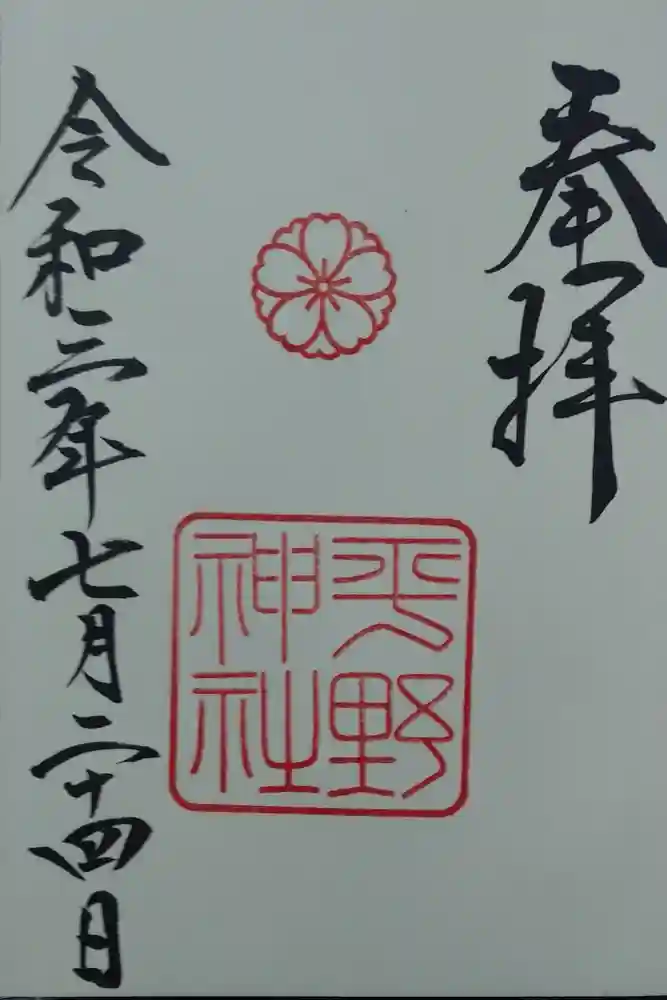 奉拝
平野
神社
令和三年七月二十四日